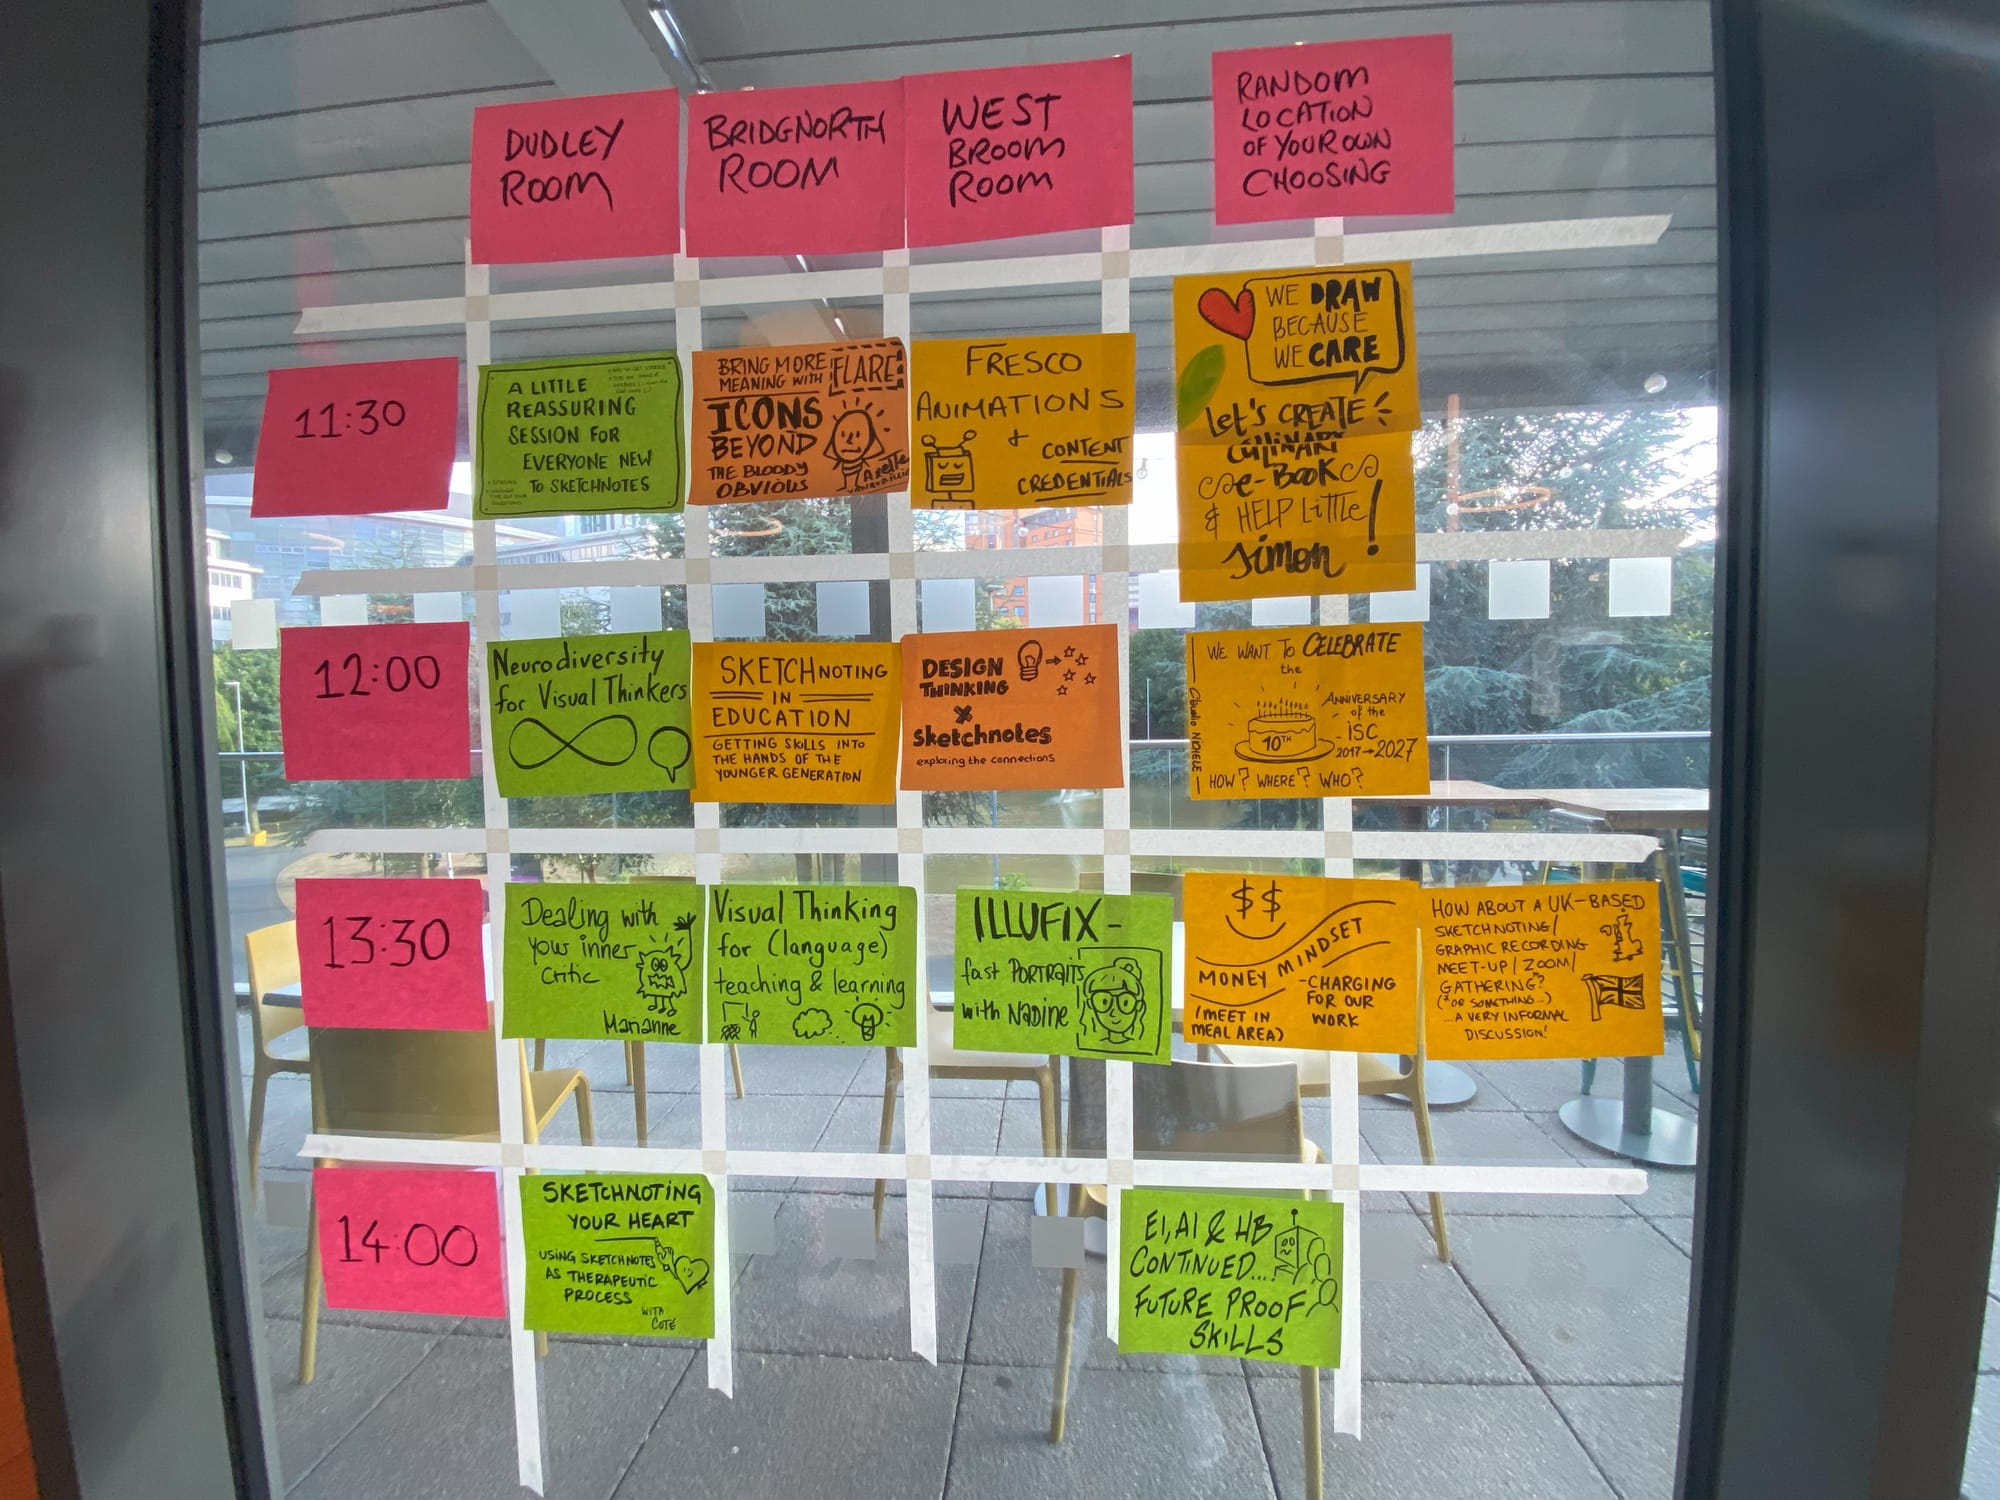 DUDLEY
ROOM
BRIDGNORTH
ROOM
WEST
BROOM
ROOM
RANDOM
LOCATION
OF YOUR OWN
CHOOSING
11:30
A LITTLE
REASSURING
SESSION FOR
EVERYONE NEW
TO SKETCHNOTES
BRING MORE
MEANING WITH FLARE
ICONS
BEYOND
THE BLOODY
OBVIOUS
Axelle
FRESCO
ANIMATIONS
+ CONTENT
CREDENTIALS
WE DRAW
BECAUSE
WE CARE
Let's CREATE
CULINARY
e-BOOK
& HELP LITTLE
Simon!
12:00
Neurodiversity
for Visual Thinkers
SKETCHNOTING
IN
EDUCATION
GETTING SKILLS INTO
THE HANDS OF THE
YOUNGER GENERATION
DESIGN
THINKING
X
Sketchnotes
exploring the connections
WE WANT TO CELEBRATE
the
10TH
ANNIVERSARY
of the
ISC
2017→2027
HOW? WHERE? WHO?
NICHELE
13:30
Dealing with
your inner
Critic
Marianne
Visual Thinking
for (language)
teaching & learning
ILLUFIX-
fast PORTRAITS
with Nadine
$$
MONEY MINDSET
-CHARGING
FOR OUR
WORK
(MEET IN
MEAL AREA)
HOW ABOUT A UK-BASED
SKETCHNOTING/
GRAPHIC RECORDING
MEET-UP/ZOOM/
GATHERING?*
(*OR SOMETHING...)
...A VERY INFORMAL
DISCUSSION!
14:00
SKETCHNOTING
YOUR HEART
USING SKETCHNOTES
AS THERAPEUTIC
PROCESS
WITH
COTÉ
EI, AI & HB
CONTINUED...
FUTURE PROOF
SKILLS